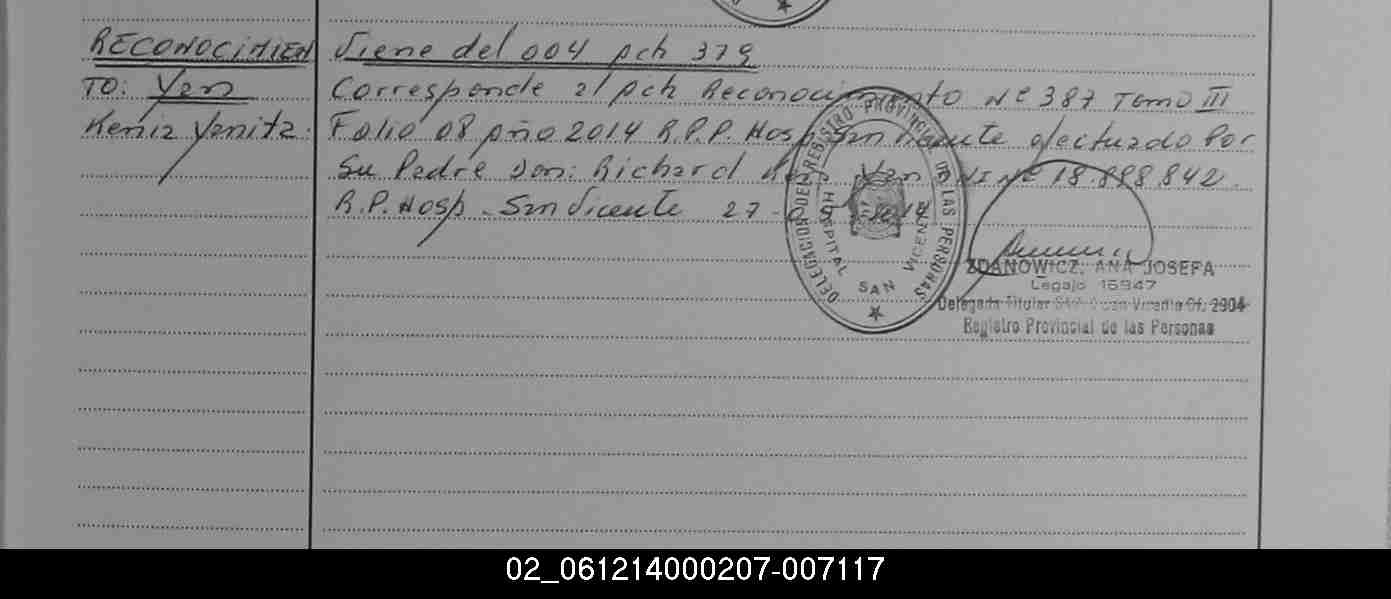 RECONOCIMIEN
TO: Yan
Kenia Yanitz.
Viene del 004 pch 379
Corresponde al pch Reconocimiento Nº 387 Tomo III
Folio 08 año 2014 R.P.P. Hosp San Vicente efectuado Por
Su Padre Don: Richard Yan DNI Nº 18.898.842.
R.P. Hosp. San Vicente 27-
DELEGACION DEL REGISTRO PROVINCIAL DE LAS PERSONAS
HOSPITAL SAN VICENTE
ZDANOWICZ, ANA JOSEFA
Legajo 16947
Delegada Titular Of. 2904
Registro Provincial de las Personas
02_061214000207-007117